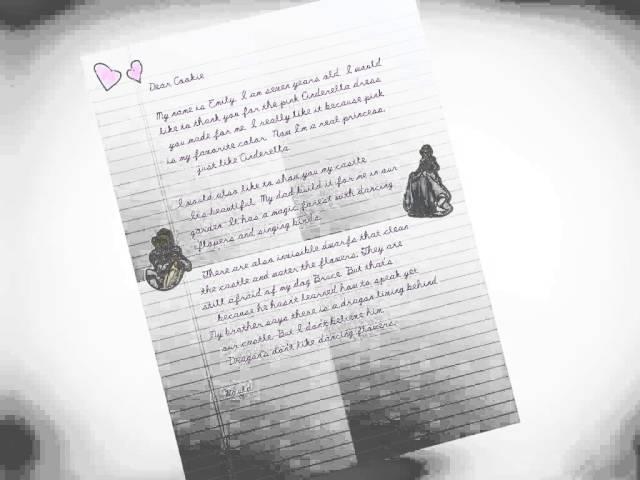 Dear Cookie
My name is Emily. I am seven years old. I would
like to thank you for the pink Cinderella dress
you made for me. I really like it because pink
is my favorite color. Now I'm a real princess,
just like Cinderella.
I would also like to show you my castle.
It's beautiful. My dad build it for me in our
garden. It has a magic forest with dancing
flowers and singing birds.
There are also invisible dwarfs that clean
the castle and water the flowers. They are
still afraid of my dog Bruce. But that's
because he hasn't learned how to speak yet.
My brother says there is a dragon living behind
our castle. But I don't believe him.
Dragons don't like dancing flowers.